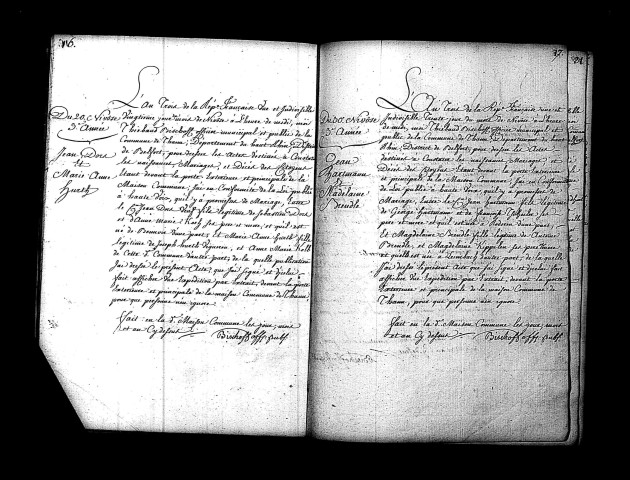 36.
Du 20 Nivôse
3e Année
Jean Dorst
et
Marie Anne
Hurth
L'An Trois de la Répe. Française Une et Indivisible
Vingtième jour du mois de Nivôse à l'heure de midi, moi
Thiebaud Bischoff officier municipal et public de la
Commune de Thann, Département du haut Rhin, District
de Belfort, pour dresser les Actes destinés à Constater
les naissances, Mariages, et Décès des Citoyens
étant devant la porte extérieure et principale de la
Maison Commune, j'ai en Conformité de la Loi publié
à haute voix, qu'il y a promesse de Mariage, Entre
le Cn Jean Dorst fils légitime de Sebastien Dorst
et d'Anne Marie ses père et mère, et qu'il est
né de d'une part, et Marie Anne Hurth fille
légitime de Joseph Hurth Vigneron, et Anne Marie Kolb
de Cette de. Commune d'autre part, de la quelle publication
J'ai dressé le présent Acte que j'ai signé et de suite
fait afficher des Expéditions par Extrait, devant la porte
Extérieure et principale de la maison Commune de Thann
pour que personne n'en ignore.
fait en la de. Maison Commune les jour, mois
et an Cy dessus Bischoff off. publ
37.
Du 20 Nivôse
3e Année
Jean
Hartmann
et
Madelaine
Brendle
L'An Trois de la Répe. Française une et
Indivisible, jour du mois de Nivôse à l'heure
de midi, moi Thiebaud Bischoff officier municipal et
public de la Commune de Thann, Département du haut
Rhin, District de Belfort, pour dresser les Actes
destinés à Constater les naissances, Mariages, et
Décès des Citoyens étant devant la porte Extérieure
et principale de la Maison Commune, J'ai en Conformité
de la Loi publié à haute voix, qu'il y a promesse de
Mariage, Entre le Cn Jean Hartmann fils légitime
de George Hartmann et de ses
père et mère, et qu'il est né à d'une part,
Et Magdelaine Brendle fille légitime de
Brendle, et Magdelaine ses père et mère
et qu'elle est née à d'autre part, de la quelle
J'ai dressé le présent Acte que j'ai signé et de suite fait
afficher des Expéditions par Extrait, devant la porte
Extérieure et principale de la maison Commune de
Thann, pour que personne n'en ignore.
fait en la de. Maison Commune les jour, mois
et an Cy dessus Bischoff off. publ